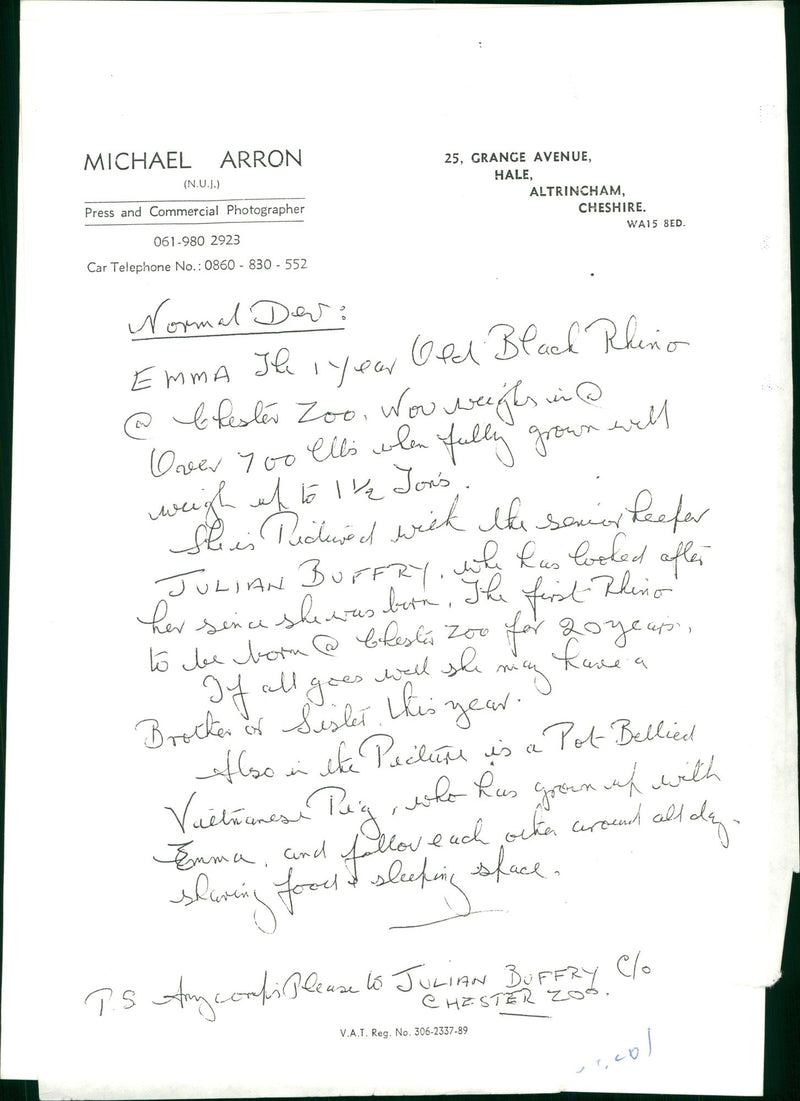 MICHAEL ARRON
(N.U.J.)
Press and Commercial Photographer
061-980 2923
Car Telephone No.: 0860 - 830 - 552
25, GRANGE AVENUE,
HALE,
ALTRINCHAM,
CHESHIRE.
WA15 8ED.
Normal Dev:
EMMA The 1 year Old Black Rhino
@ Chester Zoo, Now weighs in @
Over 700 lbs when fully grown will
weigh up to 1 1/2 Tons.
She is Pictured with the senior keeper
JULIAN BUFFRY, who has looked after
her since she was born, The first Rhino
to be born @ Chester Zoo for 20 years.
If all goes well she may have a
Brother or Sister this year.
Also in the Picture is a Pot-Bellied
Vietnamese Pig, who has grown up with
Emma, and follow each other around all day.
sharing food & sleeping space.
P.S Any comps Please to JULIAN BUFFRY C/o
CHESTER ZOO.
V.A.T. Reg. No. 306-2337-89